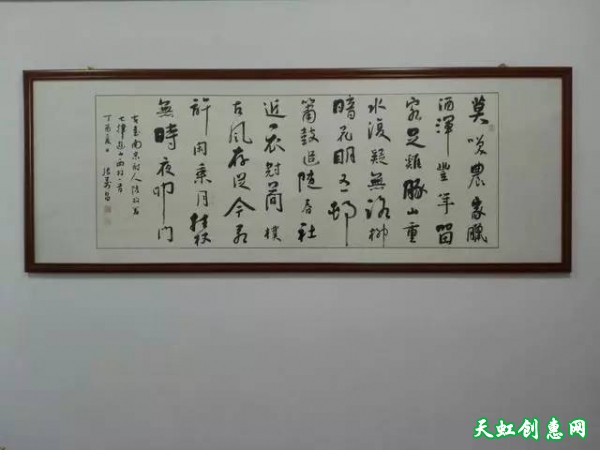 莫咲農家臘
酒渾豐年留
客足雞豚山重
水復疑無路柳
暗花明又一邨
簫鼓追隨春社
近衣冠簡樸
古風存從今若
許閑乘月拄杖
無時夜叩門
南宋詩人陸放翁
七律遊山西村一首
丁酉夏日
天虹创惠网